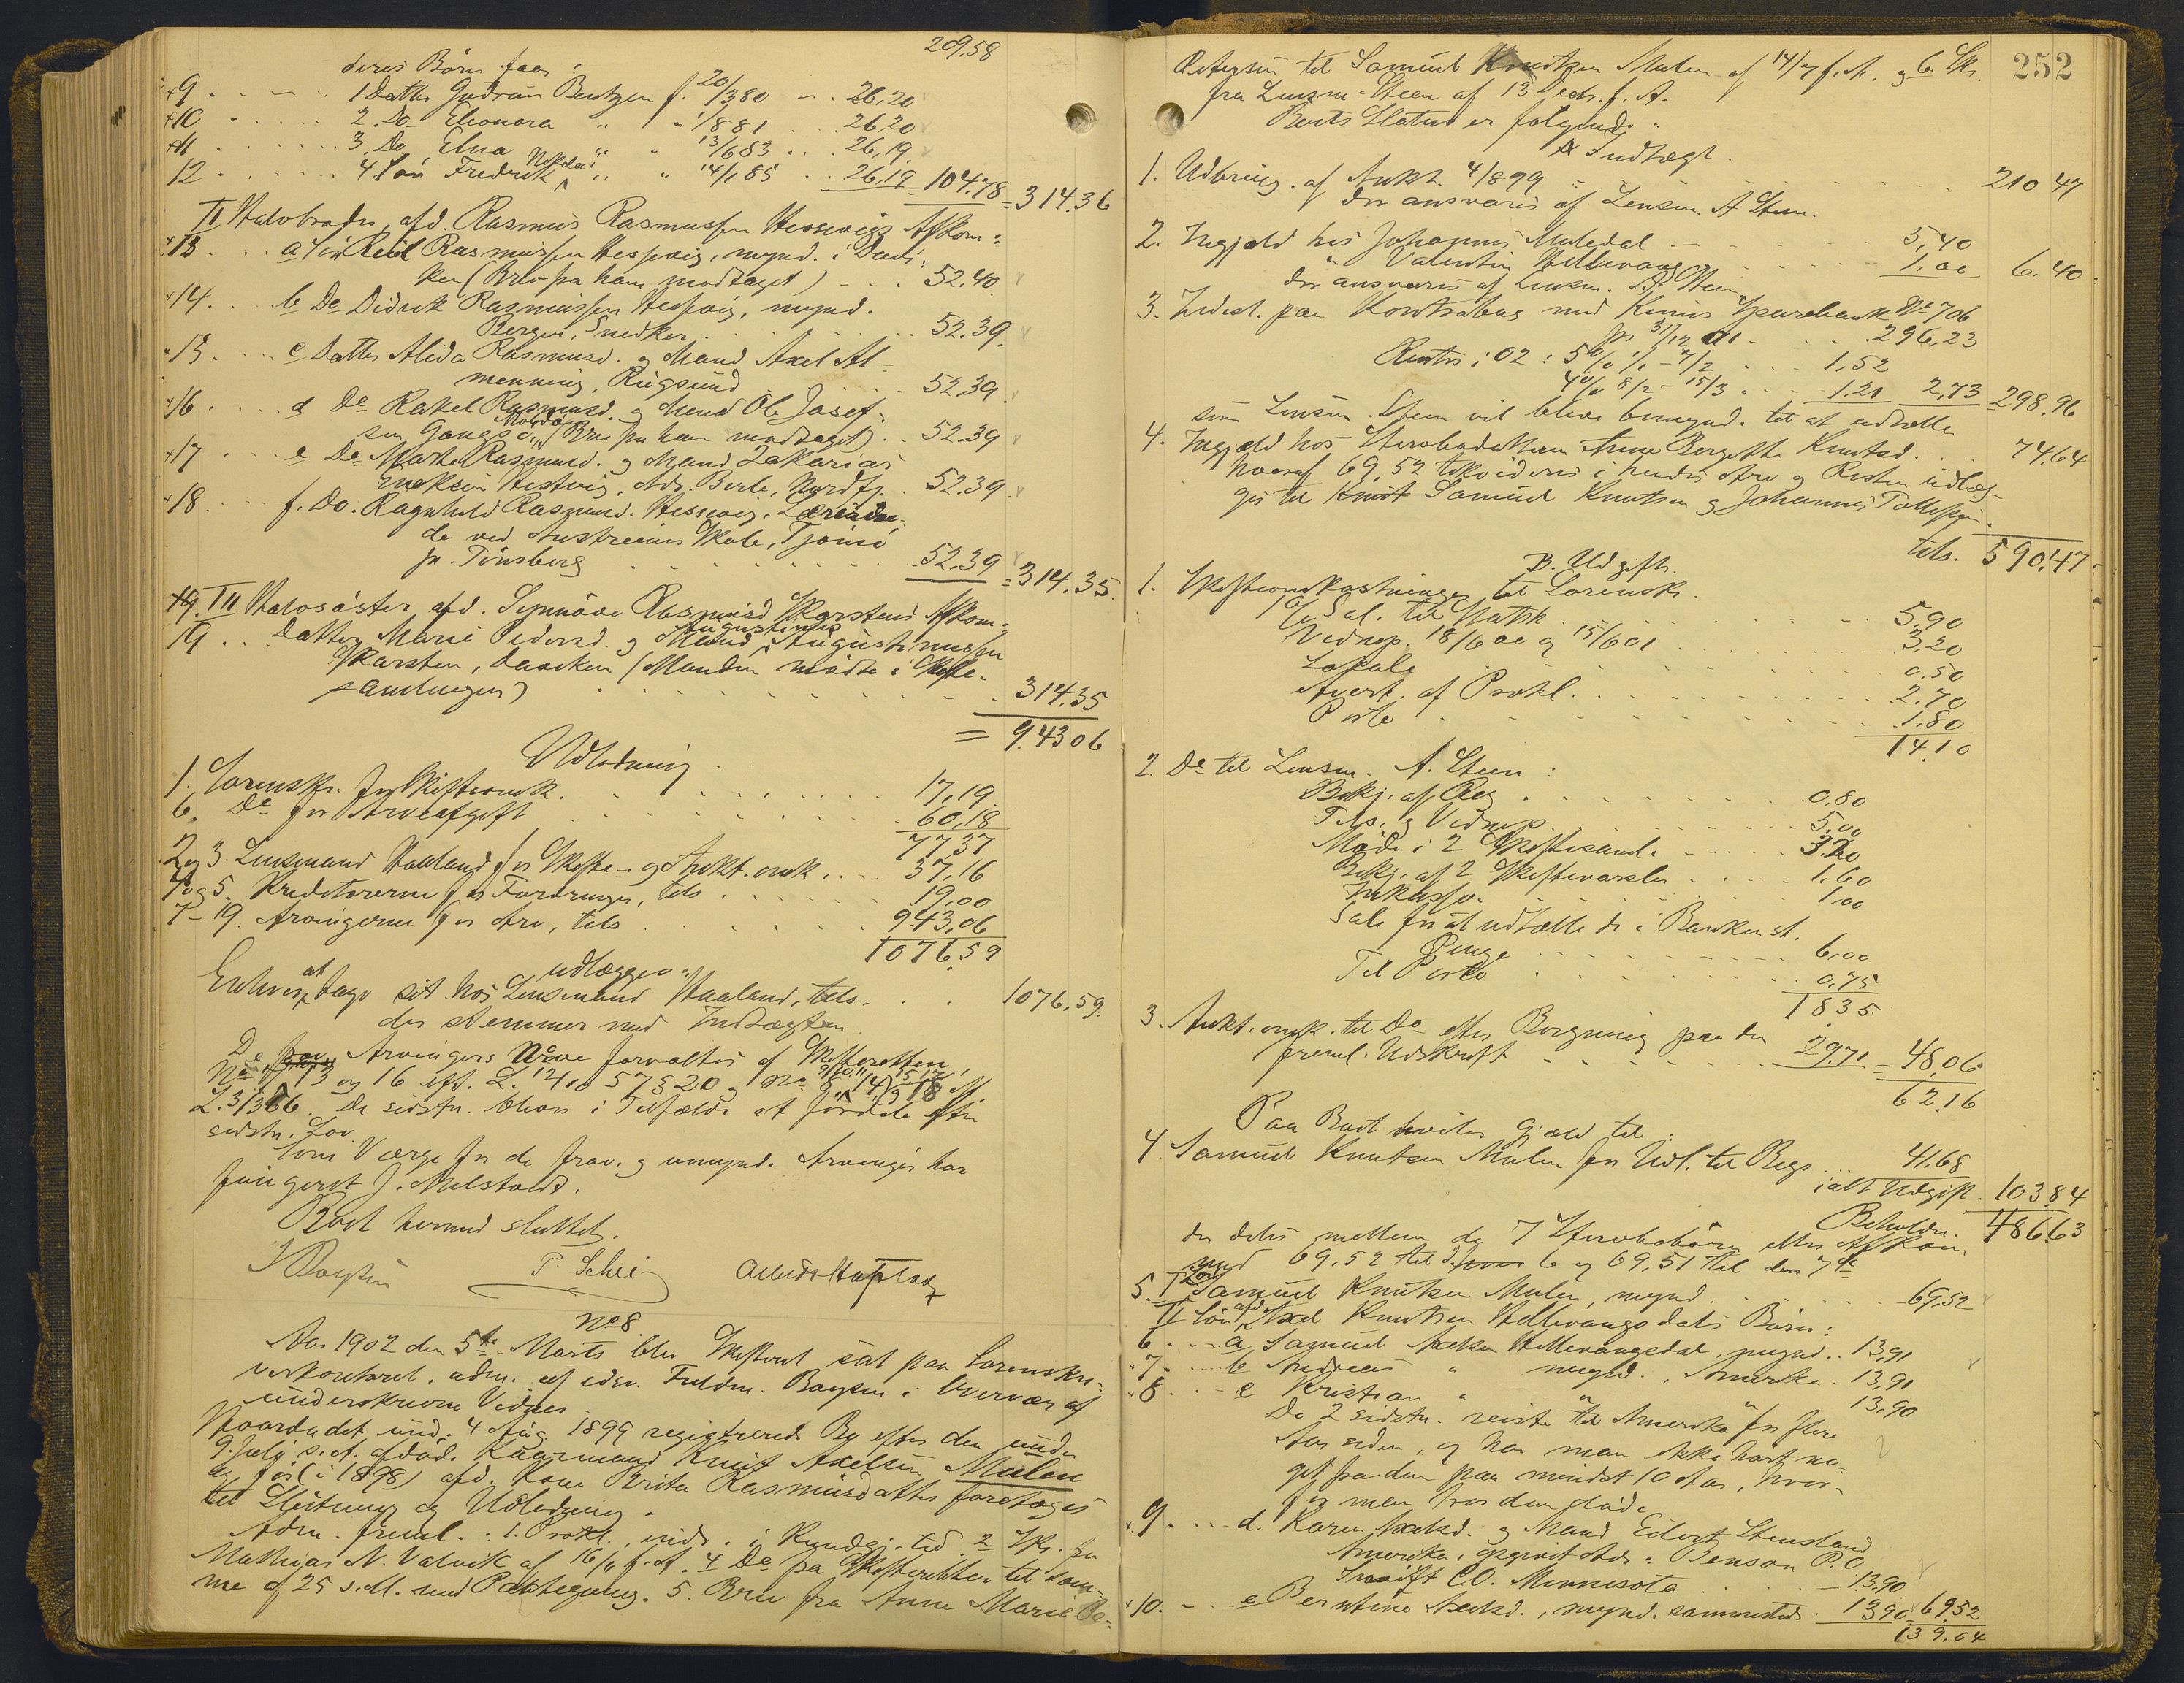 209.58
deres Børn faar:
9 1 Datter Gudrun Bentzen f. 20/3 80 26,20
10 2. Do Elionora " " 1/8 81 26,20
11 3. Do Elna " " 13/6 83 26,19
12 4. Søn Fredrik Nikolai " " 14/1 85 26,19 - 104,78 = 314.36
II Halvbroder, afd. Rasmus Rasmussen Hessevigs Afkom:
13 a Søn Reiel Rasmussen Hessevig, mynd. i Davi-
ken (Brev fra ham modtaget) 52.40
14. b Do Didrik Rasmussen Hessevig, mynd.
Bergen, Snedker 52.39.
15 c Datter Alida Rasmusd. og Mand Axel Al-
menning, Rugsund 52.39
16 d Do Rakel Rasmusd. og Mand Ole Josef-
sen Gangsø, Moldøen (Brev fra ham modtaget) 52.39
17 e Do Marte Rasmusd. og Mand Zakarias
Hestvig, Adr. Berle, Nordfj. 52.39
18 f. Do. Ragnhild Rasmusd. Hessevig, Lærerinde
de ved Skole, Tjømø
pr. Tønsberg 52.39 = 314.35.
19. III Halvsøster, afd. Synnøve Rasmusd Skarstens Afkom:
19 Datter Marie Pedersd. og Mand Augustinus Augustinussen
Skarsten, Davken (Manden mødte i Skifte-
samlingen) 314.35
= 943 06
Udlodning.
1. Sorenskr. for Skifteomk. 17,19
6. Do for Arveafgift 60,18
77 37
2 og 3. Lensmand Haaland for Skifte- og Aukt. omk. 37,16
4 og 5. Kreditorerne for Fordringer, tils 19,00
7-19. Arvingerne for Arv, tils 943,06
1076,59
udlægges:
Enhver at tage sit hos Lensmand Haaland, tils. 1076,59.
der stemmer med Indtægten.
De frav. Arvingers Arve forvaltes af Skifteretten,
No 13 og 16 eft. L. 12/10 57 § 20 og No 8 9, 10, 11 14, 15 17 18 eft.
L. 3/3 66. De sidstn. blive i Tilfælde at fordele efter
sidstn. Lov.
Som Værge for de frav. og umynd. Arvinger har
fungeret J. Melstokke.
Boet hermed sluttet.
J Boysen P. Schei
No 8
Aar 1902 den 5te Marts blev Skifteret sat paa Sorenskri-
verkontoret, adm. af edsv. Fuldm. Boysen i Overvær af
underskrevne Vidner
Hvorda det und. 4 Aug 1899 registrerede Bo efter den under
9. July s. A. afdøde Kaarmand Knut Axelsen Mulen
og før (i 1898) afd. Kone Brita Rasmusdatter foretoges
til Slutning og Udlodning.
Adm. freml.: 1. Prokl. indr. i Kundgj. tid. 2 Skr. fra
Mathias N. Valvik af 16/11 f. A. 4 Do fra Skifteretten til sam-
me af 25 s. M. med Paategning. 5. Brev fra Anne Marie Pe-
252
Petersen til Samuel Knudtzen Mulen af 14/7 f. A. og 6. Skr.
fra Lensm. Steen af 13 Decbr. f. A.
Boets Status er følgende:
A Indtægt.
1. Udbring. af Aukt. 4/8 99 210 47
der ansvares af Lensm. A Steen.
2. Tilgjæld hos Johannes Muledal 5,40
" Valentin Hellevang 1,00 6,40
der ansvares af Lensm. A. Steen
3. Indest. paa Kontrabog med Kinns Sparebank No 706
pr 31/12 01 296,23
Renter i 02: 5% 1/1 - 7/2 1,52
4% 8/2 - 15/3 1.21 2,73 = 298,96
som Lensm. Steen vil blive bemynd. til at udhæve
4. Tilgjæld hos Sterbodatteren Anne Bergethe Knutsd. 74,64
hvoraf 69,52 likvideres i hendes Arv og Resten udlæg-
ges til Samuel Knutsen og Johannes Tollefsen.
tils. 590,47
B. Udgifter.
1. Skifteomkostninger til Sorenskr.
1/2 Sal. til Statsk. 5,90
Vidnep. 18/6 00 og 15/6 01 3,20
Lokale 0,50
Avert. af Prokl. 2.70
Porto 1.80
14.10
2. Do til Lensm. A. Steen:
Bekj. af Reg. 0,80
Tils. og Vidnep. 5,00
Møde i 2 Skiftesaml. 3,20
Bekj. af 2 Skiftevarsler 1,60
Inkasso. 1,00
Sal. for at udhæve de i Banken st.
Penge 6,00
Til Porto 0,75
18 35
3. Aukt. omk. til Do efter Beregning paa den
freml. Udskrift 29,71 = 48,06
62,16
Paa Boet hviler Gjæld til:
4 Samuel Knutsen Mulen for Udl. til Begr. 41,68
ialt Udgift. 103,84
Beholdn. 486.63
der deles mellem de 7 Sterbobørn eller Afkom,
med 69,52 til de 6 og 69,51 til den 7de
5. I Søn Samuel Knutsen Mulen, mynd. 69,52
II Søn afd Axel Knutsen Hellevangsdals Børn:
6. a Samuel Axelsen Hellevangsdal, mynd. 13,91
7. b Andreas " mynd., Amerika 13,91
8 c Kristian " " " 13,90
De 2 sidstn. reiste til Amerika for flere
Aar siden, og har man ikke hørt no-
get fra dem paa mindst 10 Aar, hvor-
for man tror dem døde
9. d. Karen Axelsd. og Mand Eilert Stensland
Amerika, opgivet Adr.: Benson P.O.
Swift C.O. Minnesota 13,90
10. e Berntine Axelsd., mynd. sammesteds 13,90 69,52
139,04